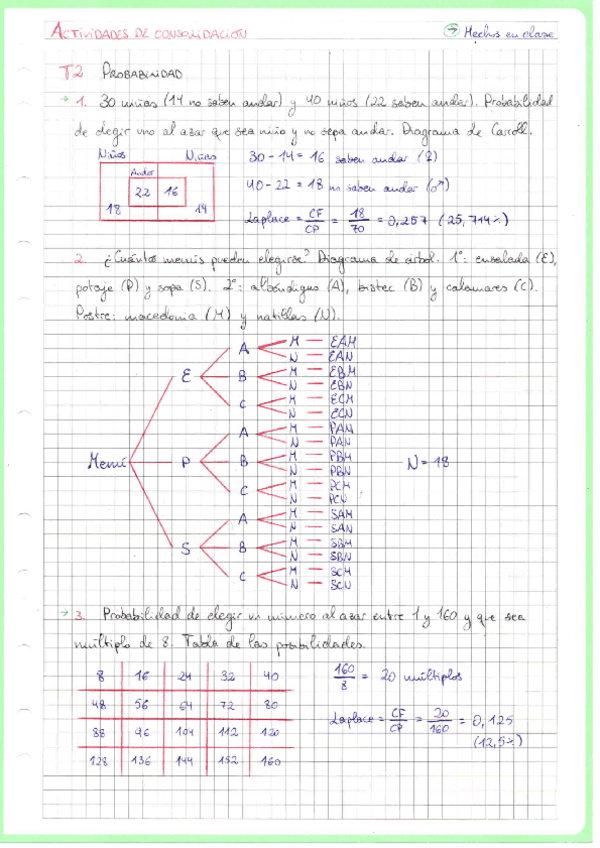 ACTIVIDADES DE CONSOLIDACIÓN → Hechos en clase
T2 PROBABILIDAD
→ 1. 30 niñas (14 no saben andar) y 40 niños (22 saben andar). Probabilidad
de elegir uno al azar que sea niño y no sepa andar. Diagrama de Carroll.
Niños Niñas 30 - 14 = 16 saben andar (♀)
Andar
22 16 40 - 22 = 18 no saben andar (♂)
18 14 Laplace = CF/CP = 18/70 = 0,257 (25,714%)
2. ¿Cuántos menús pueden elegirse? Diagrama de árbol. 1º: ensalada (E),
potaje (P) y sopa (S). 2º: albóndigas (A), bistec (B) y calamares (C).
Postre: macedonia (M) y natillas (N).
M — EAM
A
N — EAN
E B M — EBM
N — EBN
C M — ECM
N — ECN
A M — PAM
N — PAN
Menú P B M — PBM N = 18
N — PBN
C M — PCM
N — PCN
A M — SAM
N — SAN
S B M — SBM
N — SBN
C M — SCM
N — SCN
→ 3. Probabilidad de elegir un número al azar entre 1 y 160 y que sea
múltiplo de 8. Tabla de las posibilidades.
8 16 24 32 40 160/8 = 20 múltiplos
48 56 64 72 80
Laplace = CF/CP = 20/160 = 0,125
88 96 104 112 120 (12,5%)
128 136 144 152 160